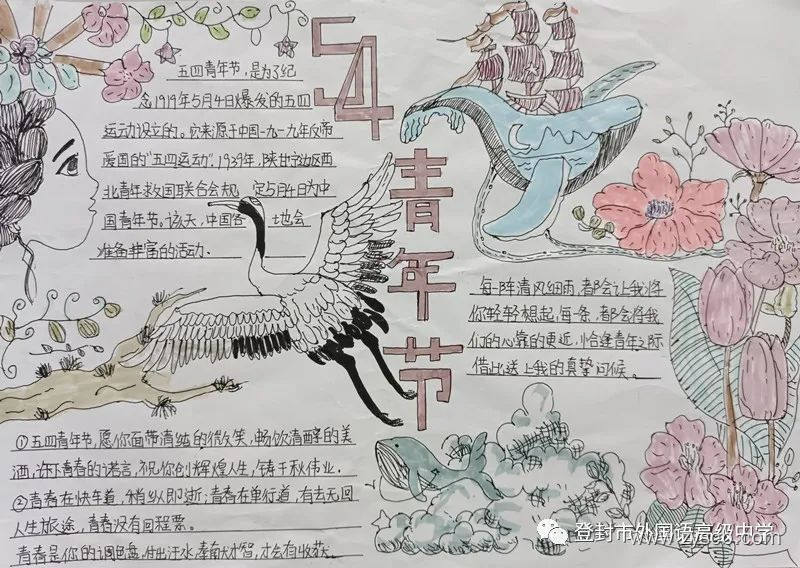 54
青年节
五四青年节，是为了纪
念1919年5月4日爆发的五四
运动设立的。它来源于中国一九一九年反帝
爱国的"五四运动"，1939年，陕甘宁边区西
北青年救国联合会规 定5月4日为中
国青年节。该天，中国各 地也会
准备丰富的活动．
每一阵清风细雨，都会让我将
你轻轻想起，每一条，都会将我
们的心靠的更近，恰逢青年之际
借此送上我的真挚问候。
①五四青年节，愿你面带清纯的微笑，畅饮清醇的美
酒，许下青春的诺言，祝你创辉煌人生，铸千秋伟业．
②青春在快车道，稍纵即逝；青春在单行道，有去无回
人生旅途，青春没有回程票。
青春是你的调色盘，付出汗水，才会有收获
登封市外国语高级中学